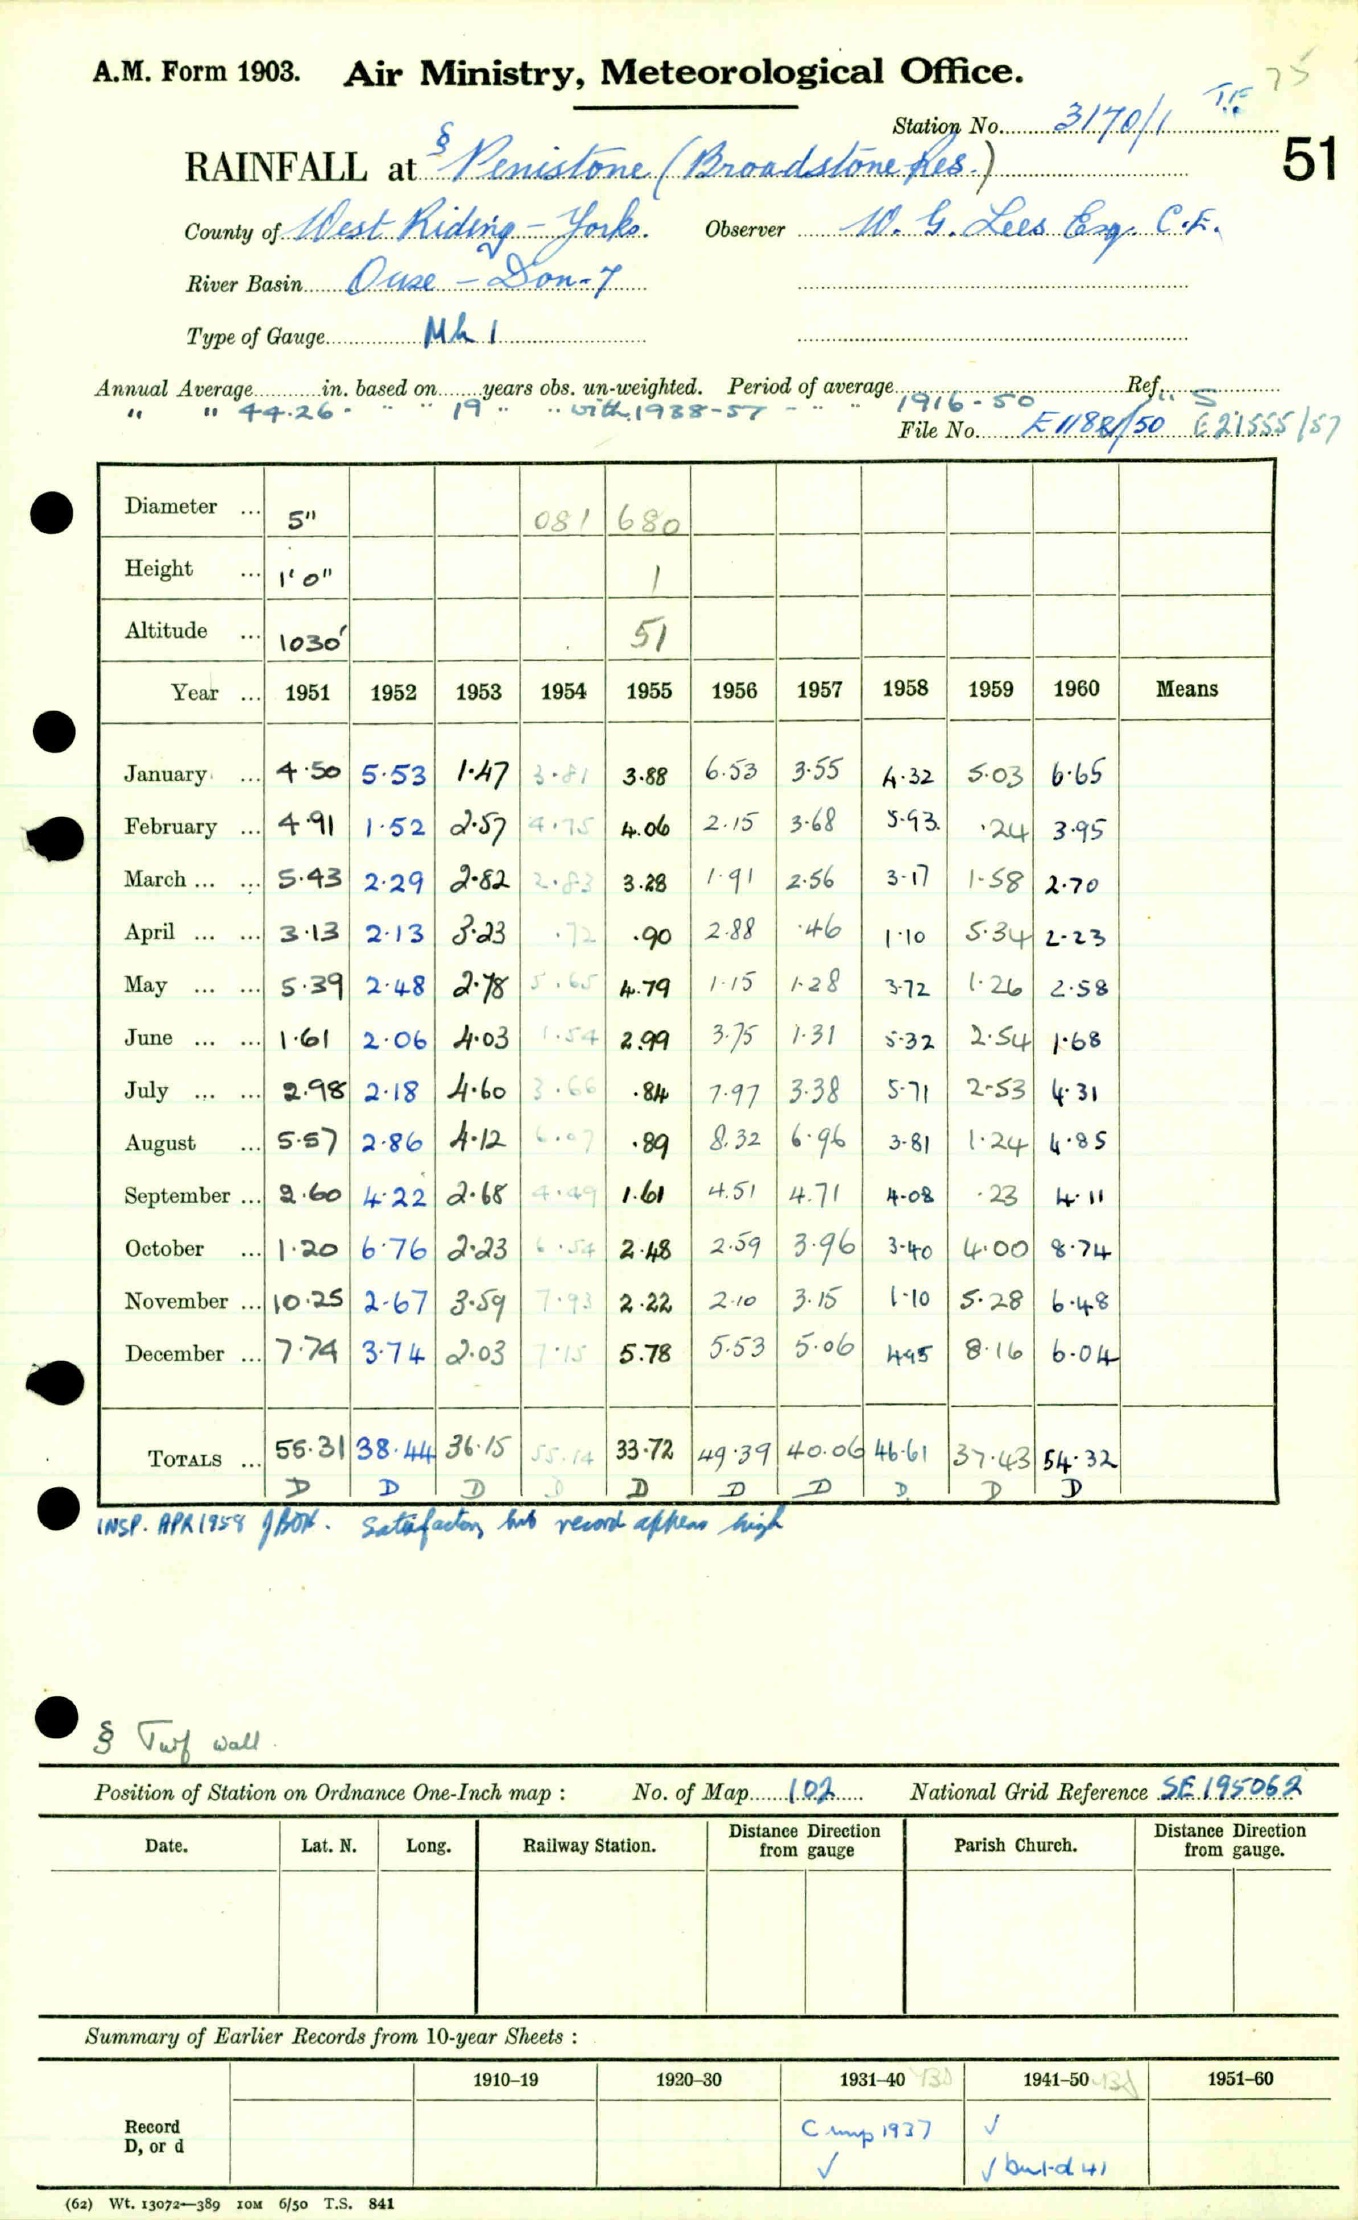 A.M. Form 1903. Air Ministry, Meteorological Office. 75
Station No. 3170/1 T.F.
RAINFALL at § Penistone (Broadstone Res.) 51
County of West Riding – Yorks. Observer W. G. Lees Esq. C.E.
River Basin Ouse – Don - 7
Type of Gauge Mk 1
Annual Average in. based on years obs. un-weighted. Period of average Ref.
" " 44.26 " " 19 " " with 1938-57 " " 1916-50 " S
File No. E1188/50 E21555/57
Diameter ... 5" 081 680
Height ... 1' 0" 1
Altitude ... 1030' 51
Year ... 1951 1952 1953 1954 1955 1956 1957 1958 1959 1960 Means
January ... 4.50 5.53 1.47 3.81 3.88 6.53 3.55 4.32 5.03 6.65
February ... 4.91 1.52 2.57 4.75 4.06 2.15 3.68 5.93 .24 3.95
March ... ... 5.43 2.29 2.82 2.83 3.28 1.91 2.56 3.17 1.58 2.70
April ... ... 3.13 2.13 3.23 .72 .90 2.88 .46 1.10 5.34 2.23
May ... ... 5.39 2.48 2.78 5.65 4.79 1.15 1.28 3.72 1.26 2.58
June ... ... 1.61 2.06 4.03 1.54 2.99 3.75 1.31 5.32 2.54 1.68
July ... ... 2.98 2.18 4.60 3.66 .84 7.97 3.38 5.71 2.53 4.31
August ... 5.57 2.86 4.12 6.07 .89 8.32 6.96 3.81 1.24 4.85
September ... 2.60 4.22 2.68 4.49 1.61 4.51 4.71 4.08 .23 4.11
October ... 1.20 6.76 2.23 6.54 2.48 2.59 3.96 3.40 4.00 8.74
November ... 10.25 2.67 3.59 7.93 2.22 2.10 3.15 1.10 5.28 6.48
December ... 7.74 3.74 2.03 7.15 5.78 5.53 5.06 4.95 8.16 6.04
TOTALS ... 55.31 38.44 36.15 55.14 33.72 49.39 40.06 46.61 37.43 54.32
D D D D D D D D D D
INSP. APR 1958 Satisfactory but record appears high
§ Turf wall
Position of Station on Ordnance One-Inch map : No. of Map 102 National Grid Reference SE 195062
Date. Lat. N. Long. Railway Station. Distance Direction from gauge Parish Church. Distance Direction from gauge.
Summary of Earlier Records from 10-year Sheets :
1910–19 1920–30 1931–40 1941–50 1951–60
Record D, or d Cmp 1937 ✓
✓ ✓ but d 41
(62) Wt. 13072—389 10M 6/50 T.S. 841